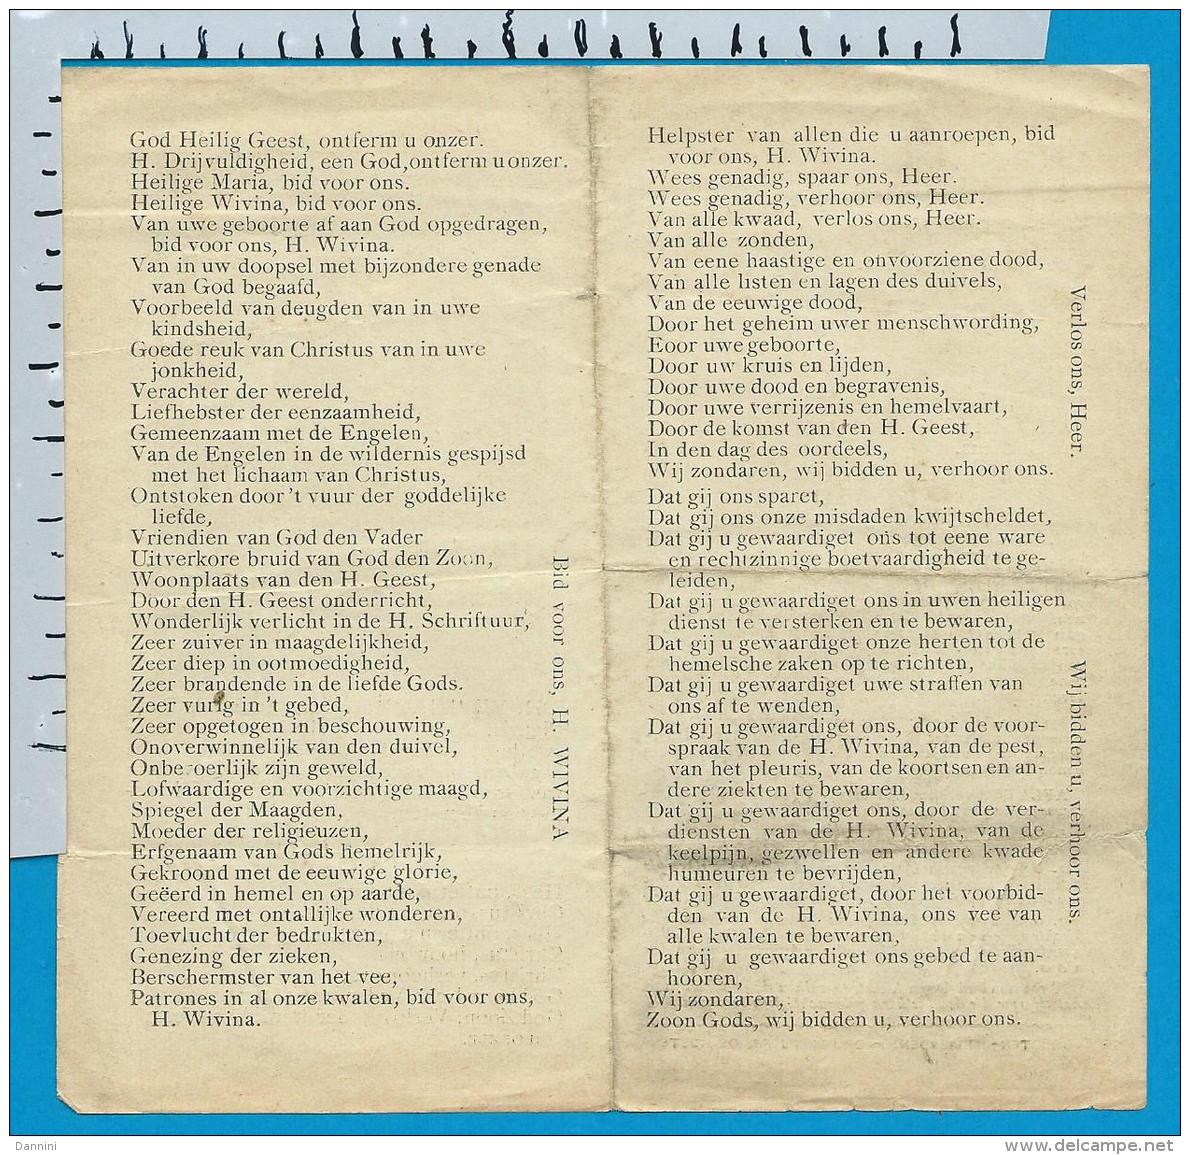 God Heilig Geest, ontferm u onzer.
H. Drijvuldigheid, een God,ontferm u onzer.
Heilige Maria, bid voor ons.
Heilige Wivina, bid voor ons.
Van uwe geboorte af aan God opgedragen,
bid voor ons, H. Wivina.
Van in uw doopsel met bijzondere genade
van God begaafd,
Voorbeeld van deugden van in uwe
kindsheid,
Goede reuk van Christus van in uwe
jonkheid,
Verachter der wereld,
Liefhebster der eenzaamheid,
Gemeenzaam met de Engelen,
Van de Engelen in de wildernis gespijsd
met het lichaam van Christus,
Ontstoken door 't vuur der goddelijke
liefde,
Vriendien van God den Vader
Uitverkore bruid van God den Zoon,
Woonplaats van den H. Geest,
Door den H. Geest onderricht,
Wonderlijk verlicht in de H. Schriftuur,
Zeer zuiver in maagdelijkheid,
Zeer diep in ootmoedigheid,
Zeer brandende in de liefde Gods.
Zeer vurig in 't gebed,
Zeer opgetogen in beschouwing,
Onoverwinnelijk van den duivel,
Onberoerlijk zijn geweld,
Lofwaardige en voorzichtige maagd,
Spiegel der Maagden,
Moeder der religieuzen,
Erfgenaam van Gods hemelrijk,
Gekroond met de eeuwige glorie,
Geëerd in hemel en op aarde,
Vereerd met ontallijke wonderen,
Toevlucht der bedrukten,
Genezing der zieken,
Berschermster van het vee,
Patrones in al onze kwalen, bid voor ons,
H. Wivina.
Bid voor ons, H. WIVINA
Helpster van allen die u aanroepen, bid
voor ons, H. Wivina.
Wees genadig, spaar ons, Heer.
Wees genadig, verhoor ons, Heer.
Van alle kwaad, verlos ons, Heer.
Van alle zonden,
Van eene haastige en onvoorziene dood,
Van alle listen en lagen des duivels,
Van de eeuwige dood,
Door het geheim uwer menschwording,
Eoor uwe geboorte,
Door uw kruis en lijden,
Door uwe dood en begravenis,
Door uwe verrijzenis en hemelvaart,
Door de komst van den H. Geest,
In den dag des oordeels,
Wij zondaren, wij bidden u, verhoor ons.
Verlos ons, Heer.
Dat gij ons sparet,
Dat gij ons onze misdaden kwijtscheldet,
Dat gij u gewaardiget ons tot eene ware
en rechtzinnige boetvaardigheid te ge-
leiden,
Dat gij u gewaardiget ons in uwen heiligen
dienst te versterken en te bewaren,
Dat gij u gewaardiget onze herten tot de
hemelsche zaken op te richten,
Dat gij u gewaardiget uwe straffen van
ons af te wenden,
Dat gij u gewaardiget ons, door de voor-
spraak van de H. Wivina, van de pest,
van het pleuris, van de koortsen en an-
dere ziekten te bewaren,
Dat gij u gewaardiget ons, door de ver-
diensten van de H. Wivina, van de
keelpijn, gezwellen en andere kwade
humeuren te bevrijden,
Dat gij u gewaardiget, door het voorbid-
den van de H. Wivina, ons vee van
alle kwalen te bewaren,
Dat gij u gewaardiget ons gebed te aan-
hooren,
Wij zondaren,
Zoon Gods, wij bidden u, verhoor ons.
Wij bidden u, verhoor ons.
Dannini
www.delcampe.net